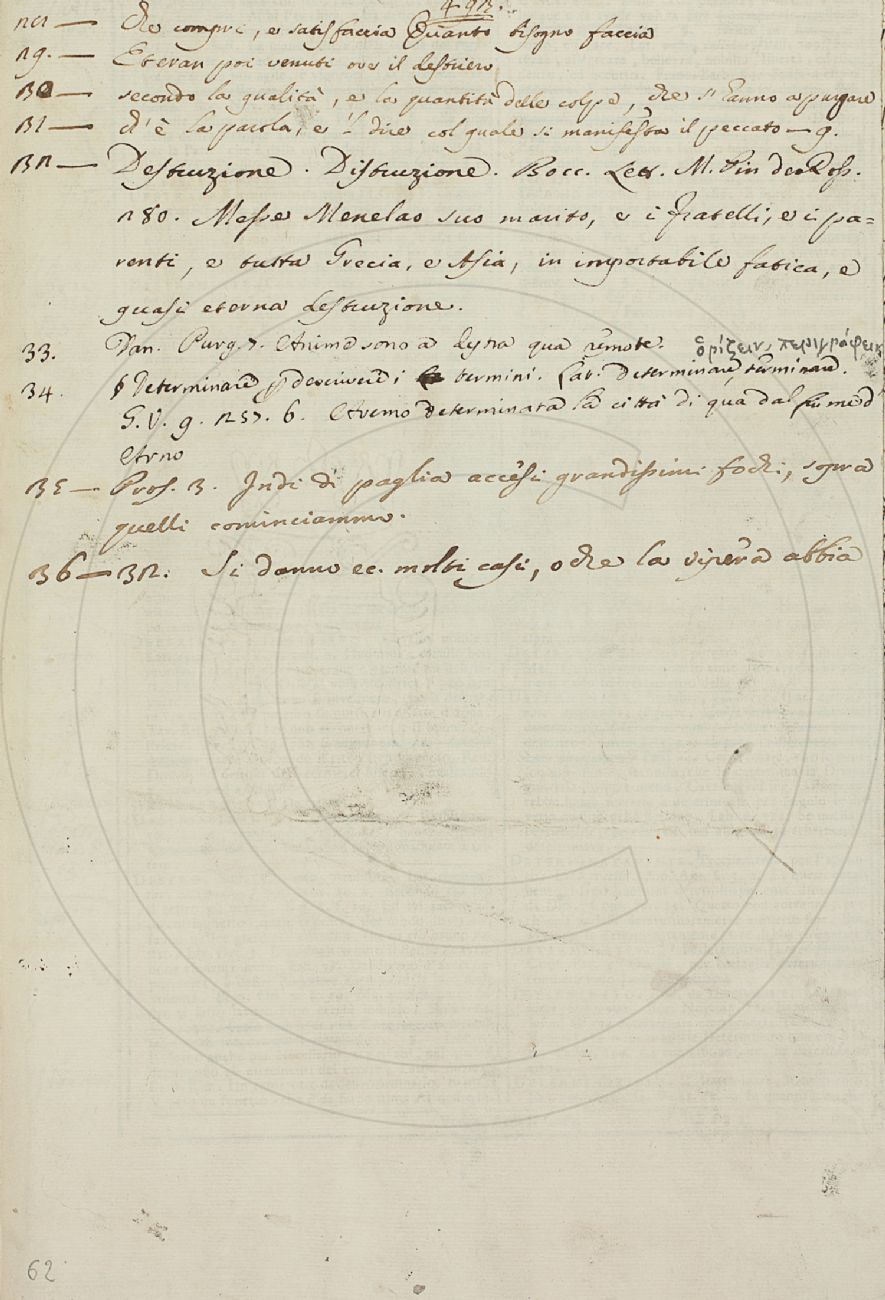 che compie, e satisfaccia Quanto bisogno faccia
29. — Et eran poi venuti ove il destriero
30 — secondo la qualità, e la quantità delle colpe, che s'hanno a purgare
31 — ch'è la parola, e 'l dire col quale si manifesta il peccato — 9.
32 — Destruzione. Distruzione. Bocc. Lett. M. Pin de Ross.
280. Messe Menelao suo marito, e i fratelli, e i pa=
renti, e tutta Grecia, e Asia, in importabile fatica, e
quasi eterna destruzione.
33. Dan. Purg. 7. Anime sono a destra qua remote. ὁρίζειν, περιγράφειν
34. § Determinare p descrivere i termini. Lat. determinare, terminare.
G. V. 9. 257. 6. Avemo determinata la città di qua dal fiume d'
Arno
35 — Pros. 3. Indi di paglia accesi grandissimi fochi, sopra
quelli cominciammo.
36 — 32. Si danno ec. molti casi, o che la vipera abbia
62